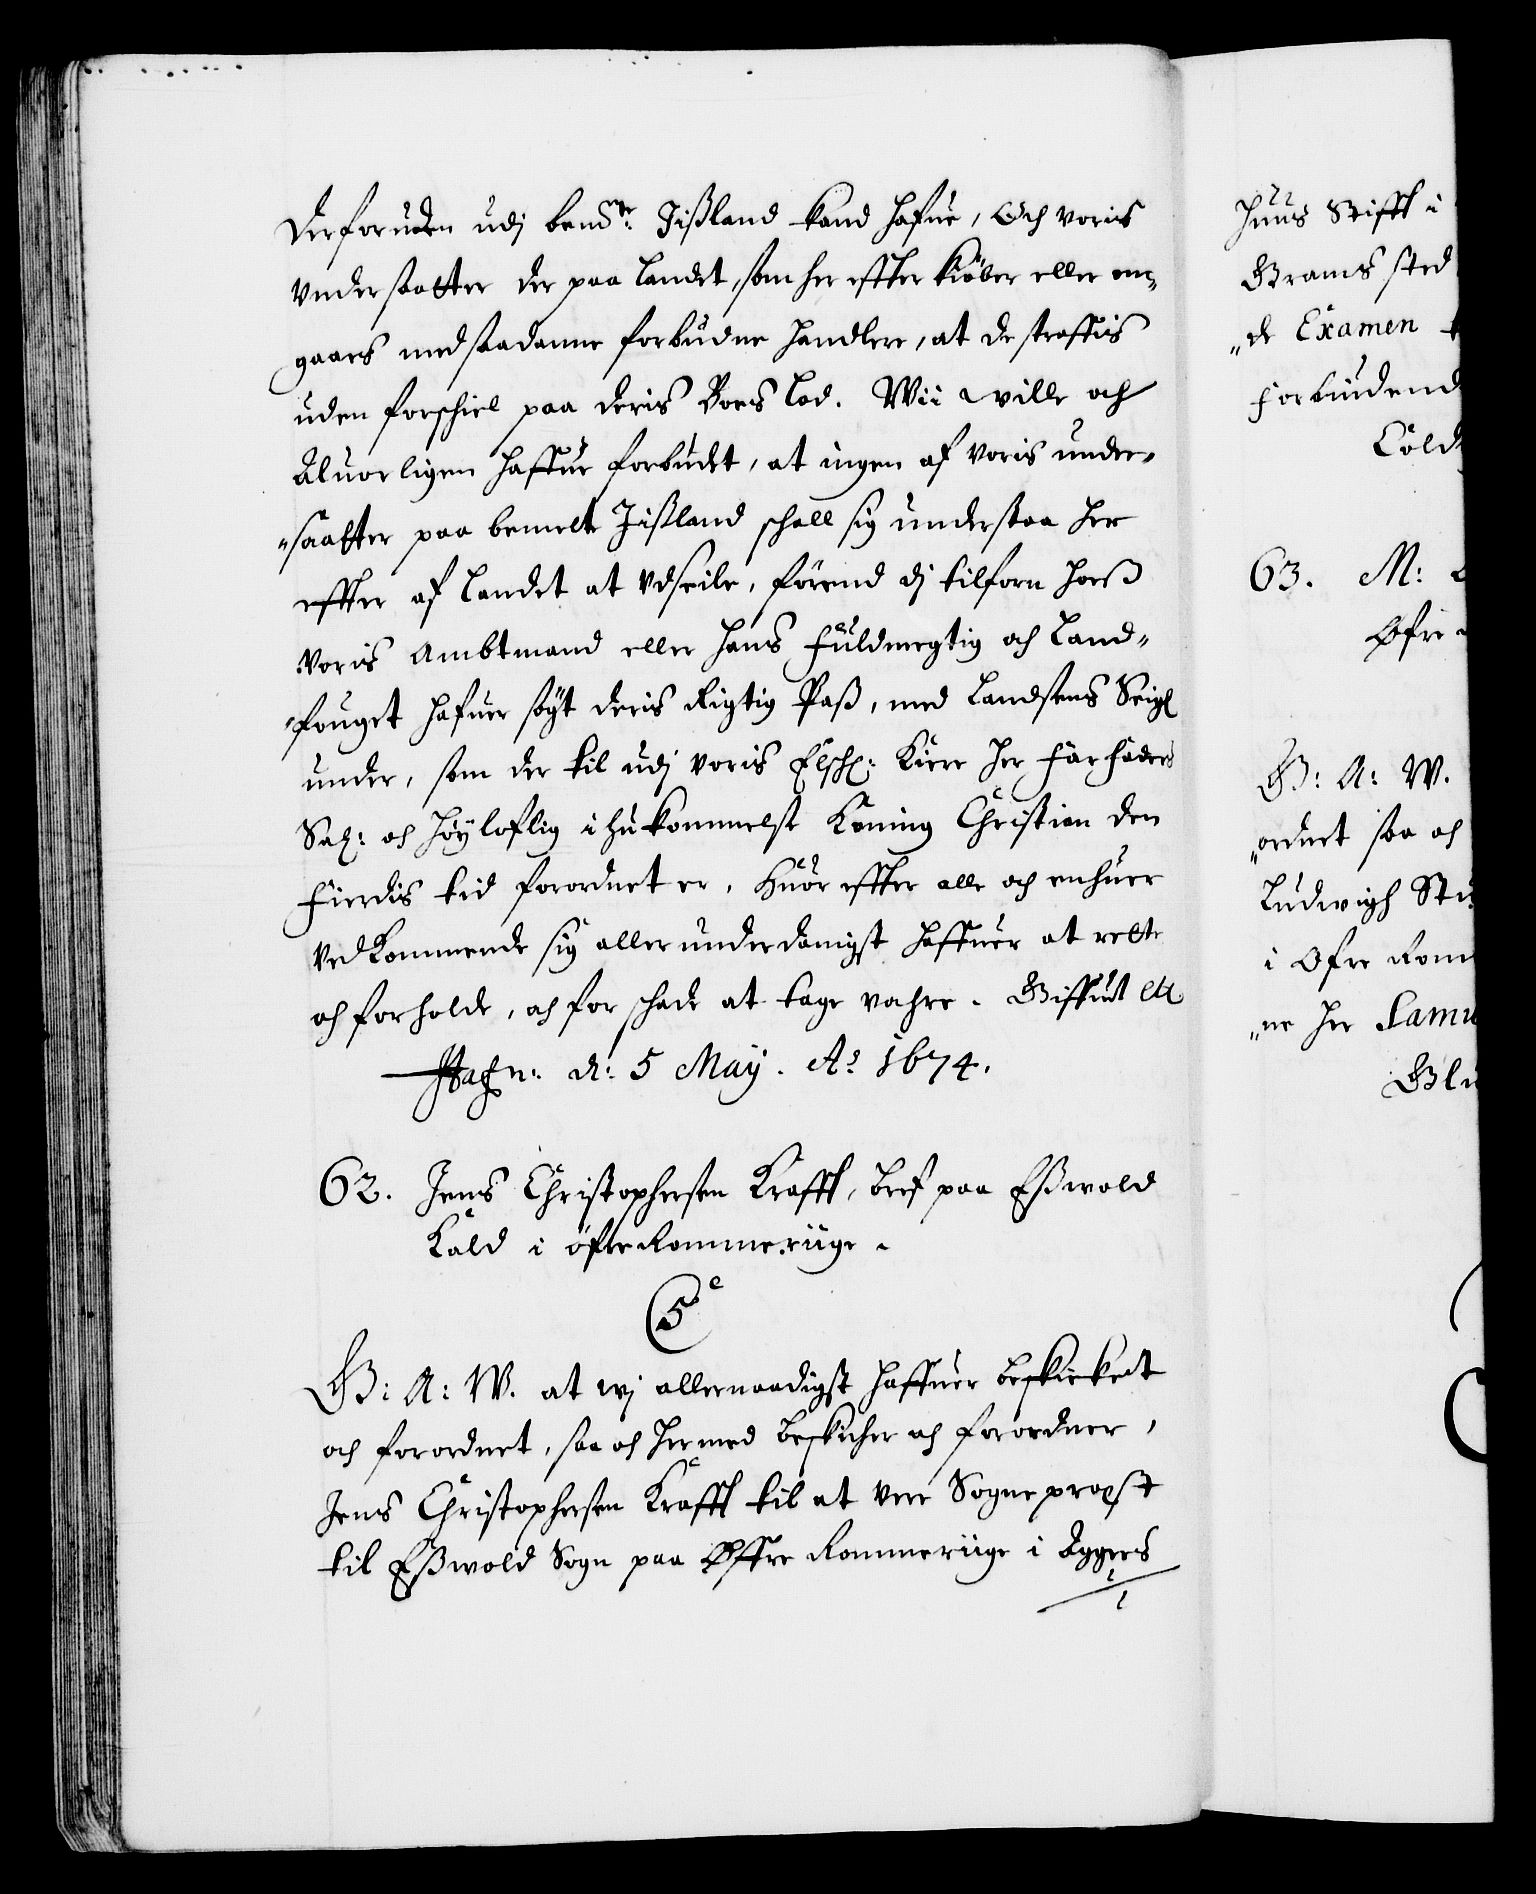 derforuden udj bemte: Jißland kand hafue, Och voris
vnderstaatter der paa landet, som her effter kiøber eller om„
gaaes med saadanne forbudne handlere, at de straffis
uden forschiel paa deris Boes lod. Wii wille och
Aluorligen haffue forbudet, at ingen af voris under„
„saatter paa bemelte Jißland schall sig understaa her
effter af landet at vdseile, førend dj tilforn hoß
voris Ambtmand eller hans fuldmegtig och Land„
„fouget hafuer søgt deris Rigtig Paß, med Landsens Seigl
under, som der til udj voris Elsch: Kiere Her Farfaders
Sal: och høyloflig ihukommelse Koning Christian den
fierdis tid forordnet er. Huor effter alle och enhuer
vedkommende sig allerunderdanigst haffuer at rette
och forholde, och for schade at tage vahre. Giffuet etc
Hafn: d: 5 May. Ao 1674.
62. Jens Christophersen Krafft, bref paa Eßwold
Kald i øfre Rommeriige.
G: A: W. at wj allernaadigst haffuer beskicket
och forordnet, saa och hermed beskicher och forordner,
Jens Christophersen Krafft til at vere Sogneprest
til Eßwold Sogn paa Øffre Rommeriige i Aggers
huus Stifft i
Grams sted
„de Examen
forbudende
63. M:
Øfre
G: A: W.
„ordnet saa och
Ludwigh
i Øfre Rom
„ne her Samu